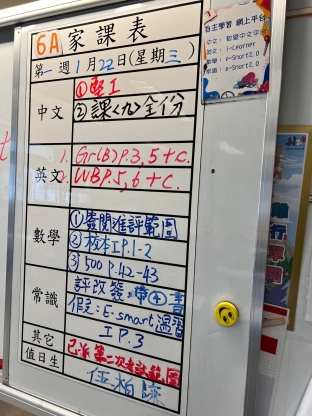 6A 家課表
第一週 1月22日(星期三)
中文
①堅工
②課〈九〉全份
英文
1. Gr(B) P.3, 5 + c.
2. WB P.5, 6 + c.
數學
①簽閱進評範圍
②校本I P.1-2
③500 P.42-43
常識
評改簽、帶④書
假定: E-smart 溫習
I P.3
其它
已派 第二次考試範圍
值日生
自主學習 網上平台
i-Learner
e-Smart 2.0
e-Smart 2.0